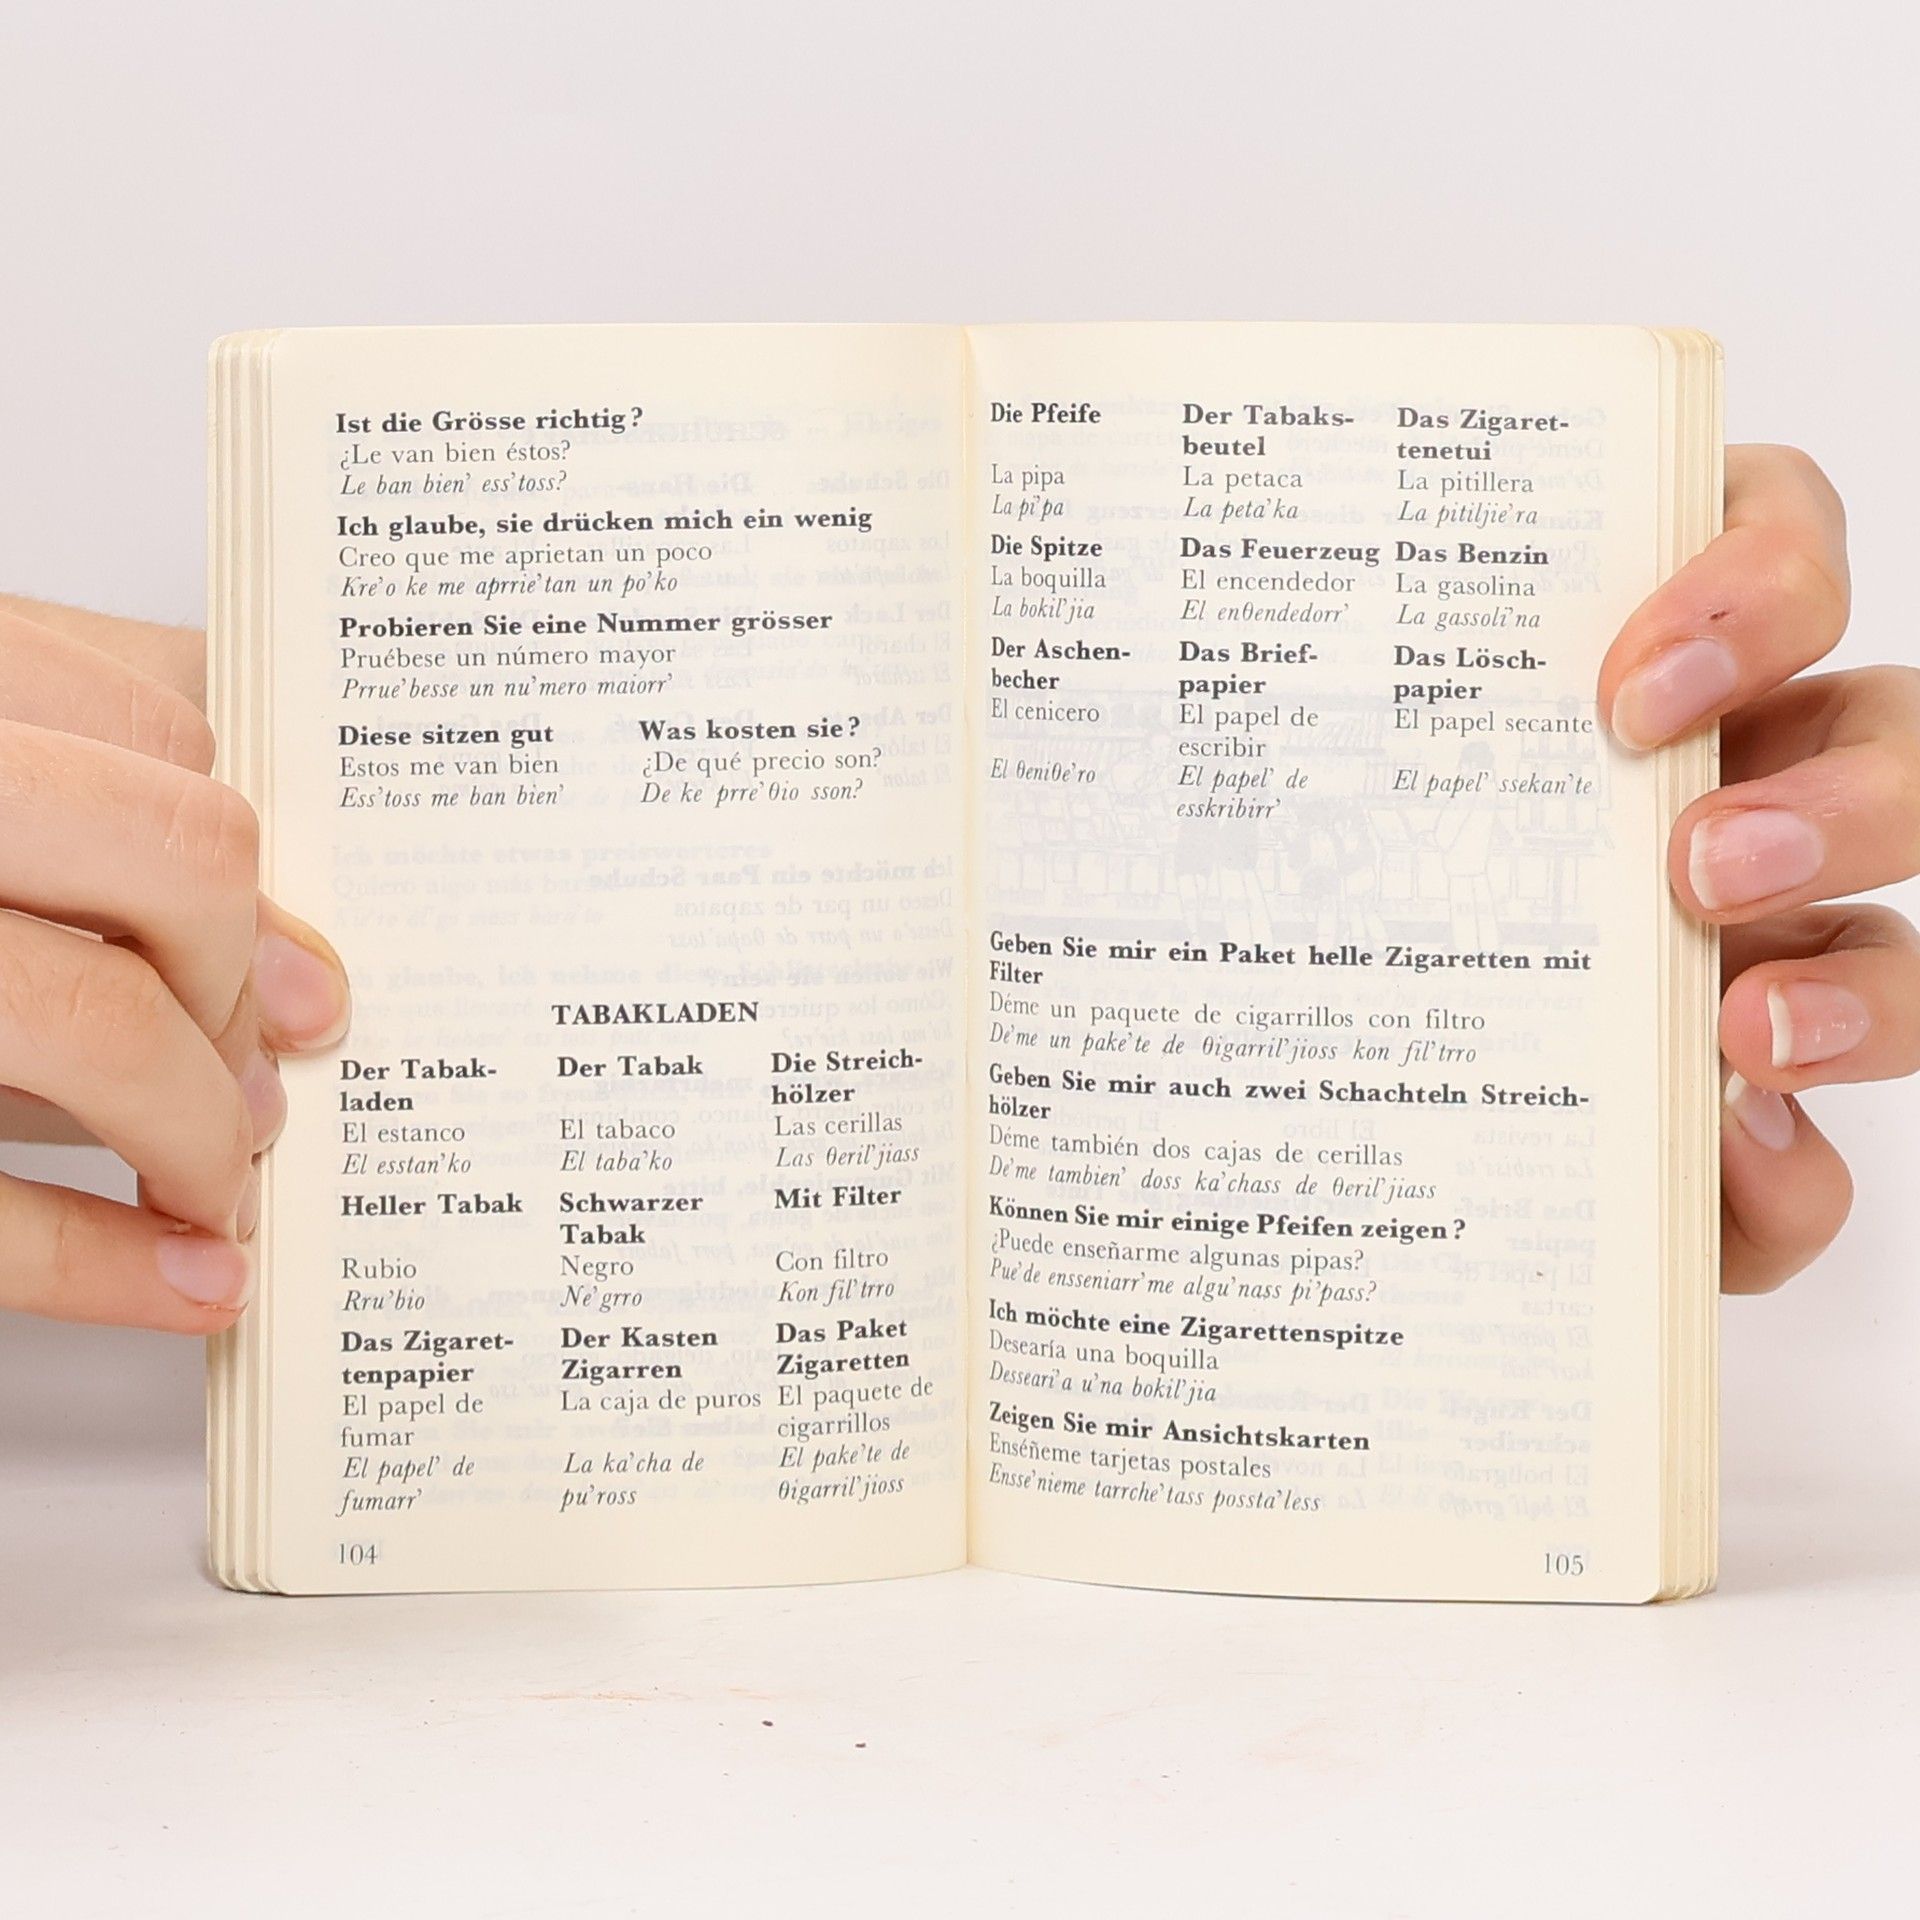 Ist die Grösse richtig?
¿Le van bien éstos?
Le ban bien' ess'toss?
Ich glaube, sie drücken mich ein wenig
Creo que me aprietan un poco
Kre'o ke me aprrie'tan un po'ko
Probieren Sie eine Nummer grösser
Pruébese un número mayor
Prrue'besse un nu'mero maiorr'
Diese sitzen gut
Estos me van bien
Ess'toss me ban bien'
Was kosten sie?
¿De qué precio son?
De ke prre'θio sson?
TABAKLADEN
Der Tabak-
laden
El estanco
El esstan'ko
Der Tabak
El tabaco
El taba'ko
Die Streich-
hölzer
Las cerillas
Las θeril'jiass
Heller Tabak
Rubio
Rru'bio
Schwarzer
Tabak
Negro
Ne'grro
Mit Filter
Con filtro
Kon fil'trro
Das Zigaret-
tenpapier
El papel de
fumar
El papel' de
fumarr'
Der Kasten
Zigarren
La caja de puros
La ka'cha de
pu'ross
Das Paket
Zigaretten
El paquete de
cigarrillos
El pake'te de
θigarril'jioss
104
Die Pfeife
La pipa
La pi'pa
Der Tabaks-
beutel
La petaca
La peta'ka
Das Zigaret-
tenetui
La pitillera
La pitiljie'ra
Die Spitze
La boquilla
La bokil'jia
Das Feuerzeug
El encendedor
El enθendedorr'
Das Benzin
La gasolina
La gassoli'na
Der Aschen-
becher
El cenicero
El θeniθe'ro
Das Brief-
papier
El papel de
escribir
El papel' de
esskribirr'
Das Lösch-
papier
El papel secante
El papel' ssekan'te
Geben Sie mir ein Paket helle Zigaretten mit
Filter
Déme un paquete de cigarrillos con filtro
De'me un pake'te de θigarril'jioss kon fil'trro
Geben Sie mir auch zwei Schachteln Streich-
hölzer
Déme también dos cajas de cerillas
De'me tambien' doss ka'chass de θeril'jiass
Können Sie mir einige Pfeifen zeigen?
¿Puede enseñarme algunas pipas?
Pue'de ensseniarr'me algu'nass pi'pass?
Ich möchte eine Zigarettenspitze
Desearía una boquilla
Desseari'a u'na bokil'jia
Zeigen Sie mir Ansichtskarten
Enséñeme tarjetas postales
Ensse'nieme tarrche'tass possta'less
105